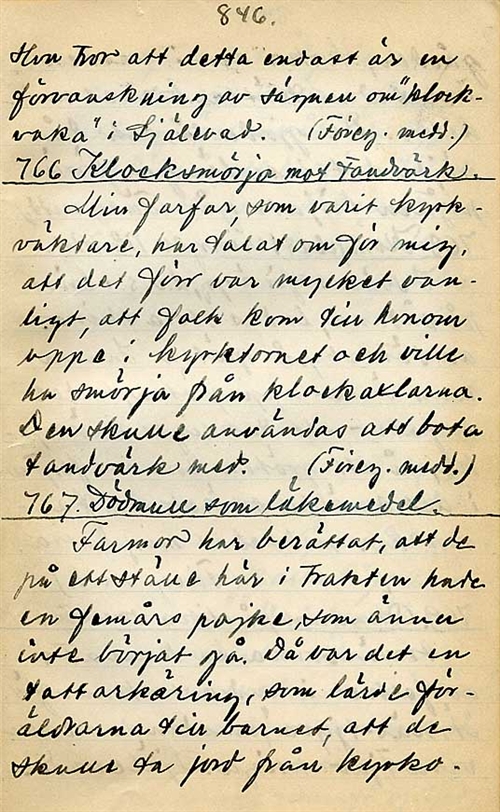 846.
Hon tror att detta endast är en
förvanskning av sägnen om "klock-
vaka" i Själevad. (Föreg. medd.)
766 Klocksmörja mot Tandvärk.
Min farfar, som varit kyrk-
väktare, har talat om för mig,
att det förr var mycket van-
ligt, att folk kom till honom
uppe i kyrktornet och ville
ha smörja från klockaxlarna.
Den skulle användas att bota
tandvärk med. (Föreg. medd.)
767. Dödmull som läkemedel.
Farmor har berättat, att de
på ett ställe här i trakten hade
en femårs pojke, som ännu
inte börjat gå. Då var det en
tattarkäring, som lärde för-
äldrarna till barnet, att de
skulle ta jord från kyrko-